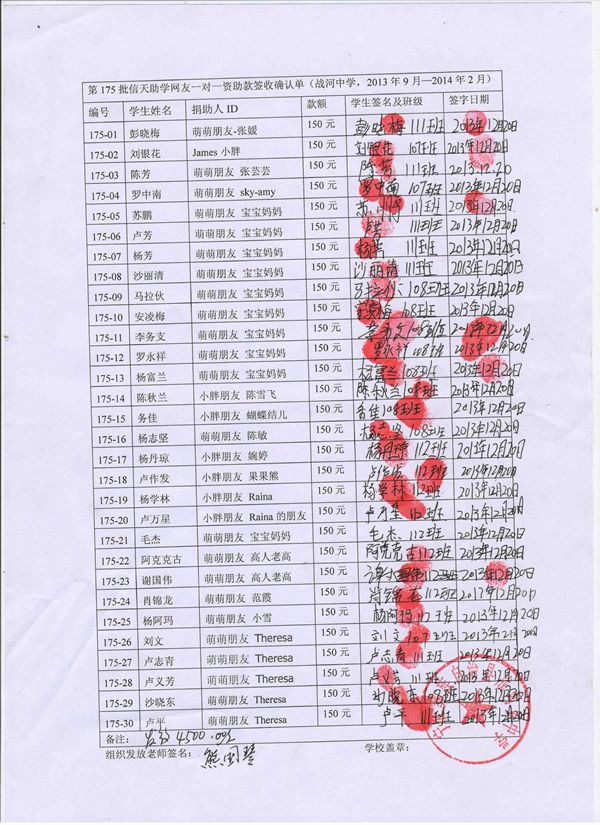 第 175 批信天助学网友一对一资助款签收确认单（战河中学，2013 年 9 月—2014 年 2 月）
编号 学生姓名 捐助人 ID 款额 学生签名及班级 签字日期
175-01 彭晓梅 萌萌朋友-张媛 150 元 彭晓梅 111班 2013年12月20日
175-02 刘银花 James 小胖 150 元 刘银花 107班 2013年12月20日
175-03 陈芳 萌萌朋友 张芸芸 150 元 陈芳 111班 2013.12.20
175-04 罗中南 萌萌朋友 sky-amy 150 元 罗中南 107班 2013年12月20日
175-05 苏鹏 萌萌朋友 宝宝妈妈 150 元 苏鹏 111班 2013年12月20日
175-06 卢芳 萌萌朋友 宝宝妈妈 150 元 卢芳 111班 2013年12月20日
175-07 杨芳 萌萌朋友 宝宝妈妈 150 元 杨芳 111班 2013年12月20日
175-08 沙丽清 萌萌朋友 宝宝妈妈 150 元 沙丽清 111班 2013年12月20日
175-09 马拉伙 萌萌朋友 宝宝妈妈 150 元 马拉伙 108班 2013年12月20日
175-10 安凌梅 萌萌朋友 宝宝妈妈 150 元 安凌梅 108班 2013年12月20日
175-11 李务支 萌萌朋友 宝宝妈妈 150 元 李务支 108班 2013年12月20日
175-12 罗永祥 萌萌朋友 宝宝妈妈 150 元 罗永祥 108班 2013年12月20日
175-13 杨富兰 萌萌朋友 宝宝妈妈 150 元 杨富兰 108班 2013年12月20日
175-14 陈秋兰 小胖朋友 陈雪飞 150 元 陈秋兰 108班 2013年12月20日
175-15 务佳 小胖朋友 蝴蝶结儿 150 元 务佳 108班 2013年12月20日
175-16 杨志坚 萌萌朋友 陈敏 150 元 杨志坚 108班 2013年12月20日
175-17 杨丹琼 小胖朋友 婉婷 150 元 杨丹琼 112班 2013年12月20日
175-18 卢作发 小胖朋友 果果熊 150 元 卢作发 112班 2013年12月20日
175-19 杨学林 小胖朋友 Raina 150 元 杨学林 112班 2013年12月20日
175-20 卢万星 小胖朋友 Raina 的朋友 150 元 卢万星 112班 2013年12月20日
175-21 毛杰 萌萌朋友 宝宝妈妈 150 元 毛杰 112班 2013年12月20日
175-22 阿克克古 萌萌朋友 高人老高 150 元 阿克克古 112班 2013年12月20日
175-23 谢国伟 萌萌朋友 高人老高 150 元 谢国伟 112班 2013年12月20日
175-24 肖锦龙 萌萌朋友 范霞 150 元 肖锦龙 112班 2013年12月20日
175-25 杨阿玛 萌萌朋友 小雪 150 元 杨阿玛 112班 2013年12月20日
175-26 刘文 萌萌朋友 Theresa 150 元 刘文 107班 2013年12月20日
175-27 卢志青 萌萌朋友 Theresa 150 元 卢志青 111班 2013年12月20日
175-28 卢义芳 萌萌朋友 Theresa 150 元 卢义芳 111班 2013年12月20日
175-29 沙晓东 萌萌朋友 Theresa 150 元 沙晓东 108班 2013年12月20日
175-30 卢平 萌萌朋友 Theresa 150 元 卢平 111班 2013年12月20日
备注： 4500.00
组织发放老师签名： 熊国慧 学校盖章：